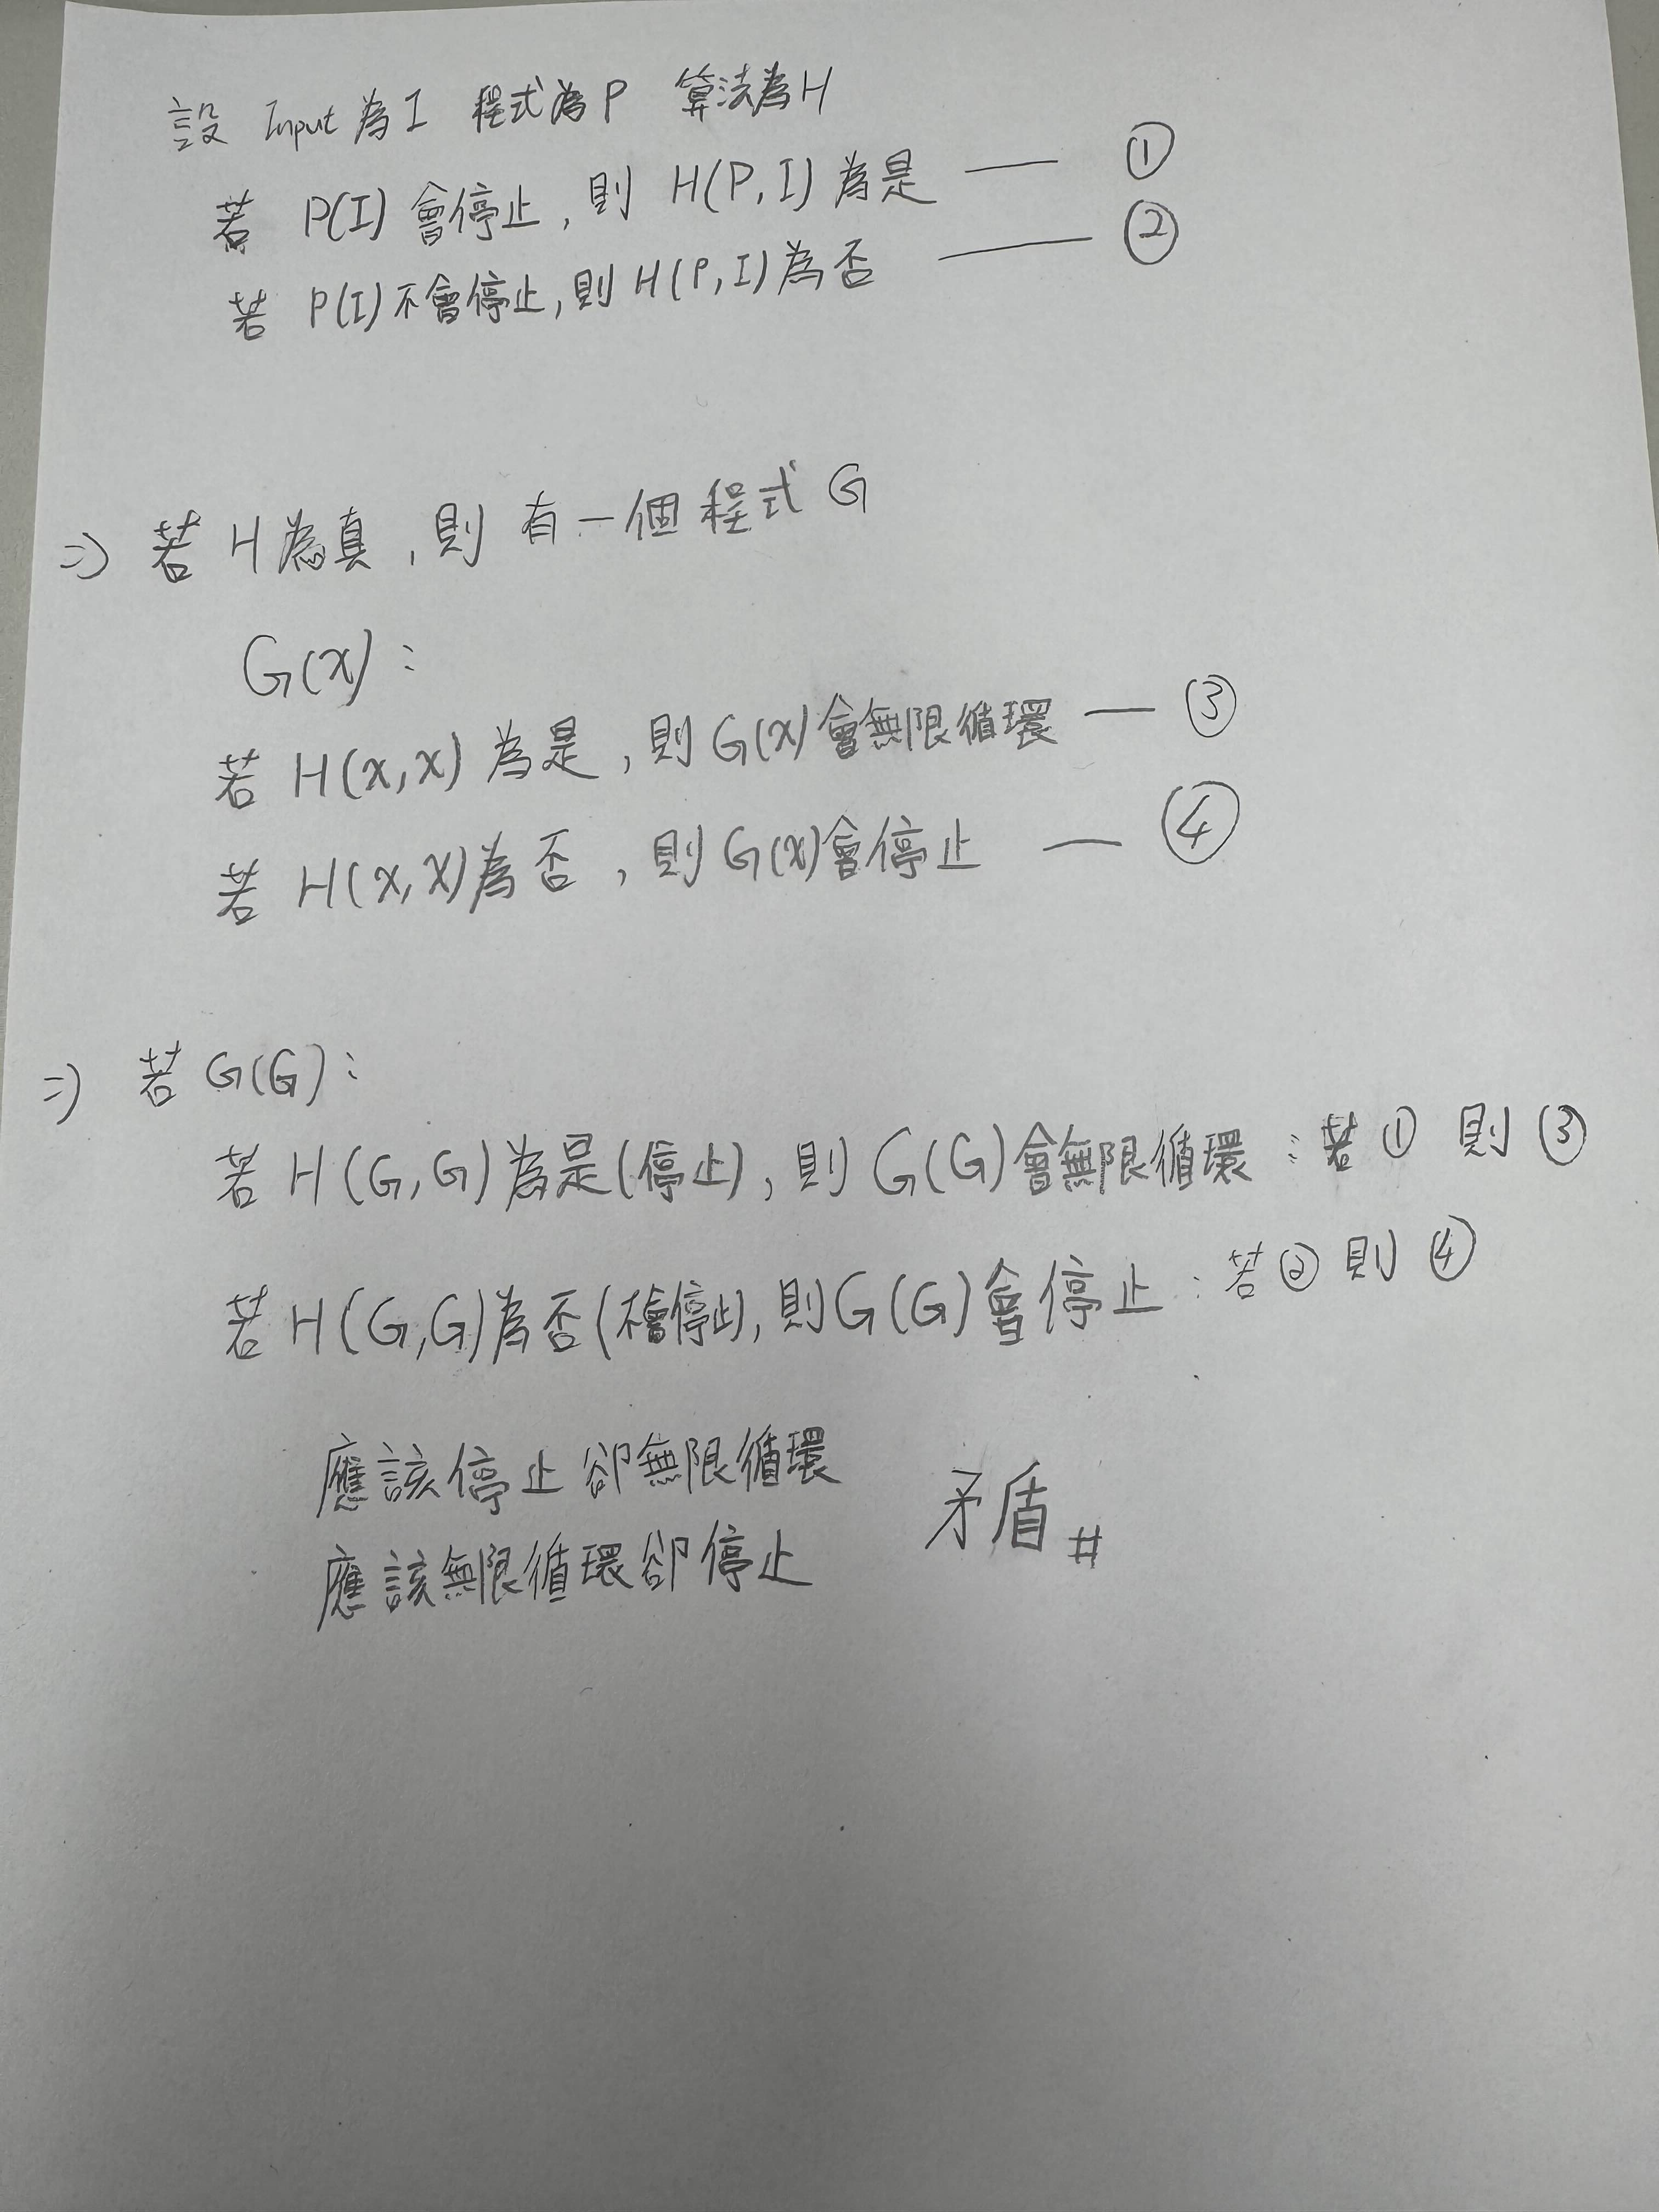 設 Input 為 I 程式為 P 算法為 H
若 P(I) 會停止, 則 H(P, I) 為是 —— ①
若 P(I) 不會停止, 則 H(P, I) 為否 —— ②
⇒ 若 H 為真, 則 有一個程式 G
G(x) :
若 H(x, x) 為是, 則 G(x) 會無限循環 — ③
若 H(x, x) 為否, 則 G(x) 會停止 — ④
⇒ 若 G(G) :
若 H(G, G) 為是(停止), 則 G(G) 會無限循環 : 若 ① 則 ③
若 H(G, G) 為否(不會停止), 則 G(G) 會停止 : 若 ② 則 ④
應該停止卻無限循環
應該無限循環卻停止 矛盾 #